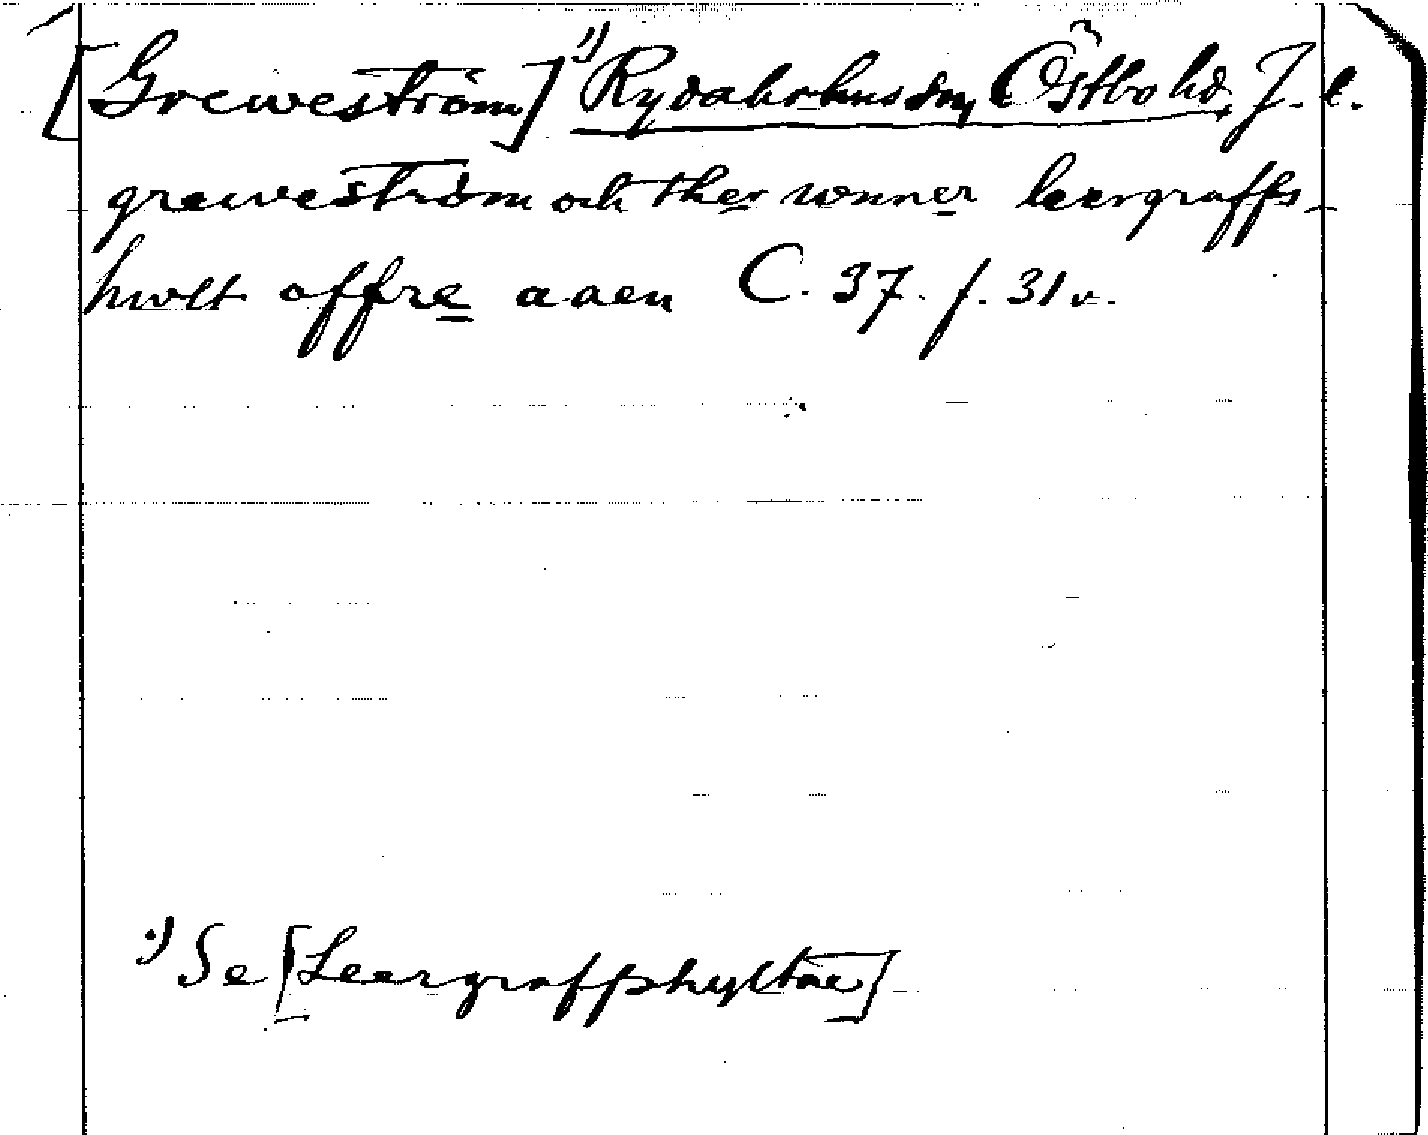 [Greweström] ¹) Rydaholms sn, Östbo hd, J. l.
greweström och ther wnner leergraffs-
hwlt offre aaen C. 37. f. 31 v.
¹) Se [Leergraffshyltae]